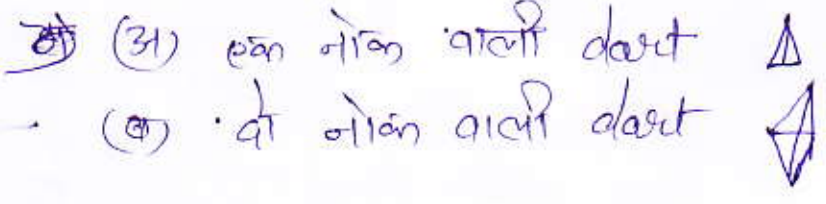 (अ) एक नोक वाली dart
(ब) दो नोक वाली dart